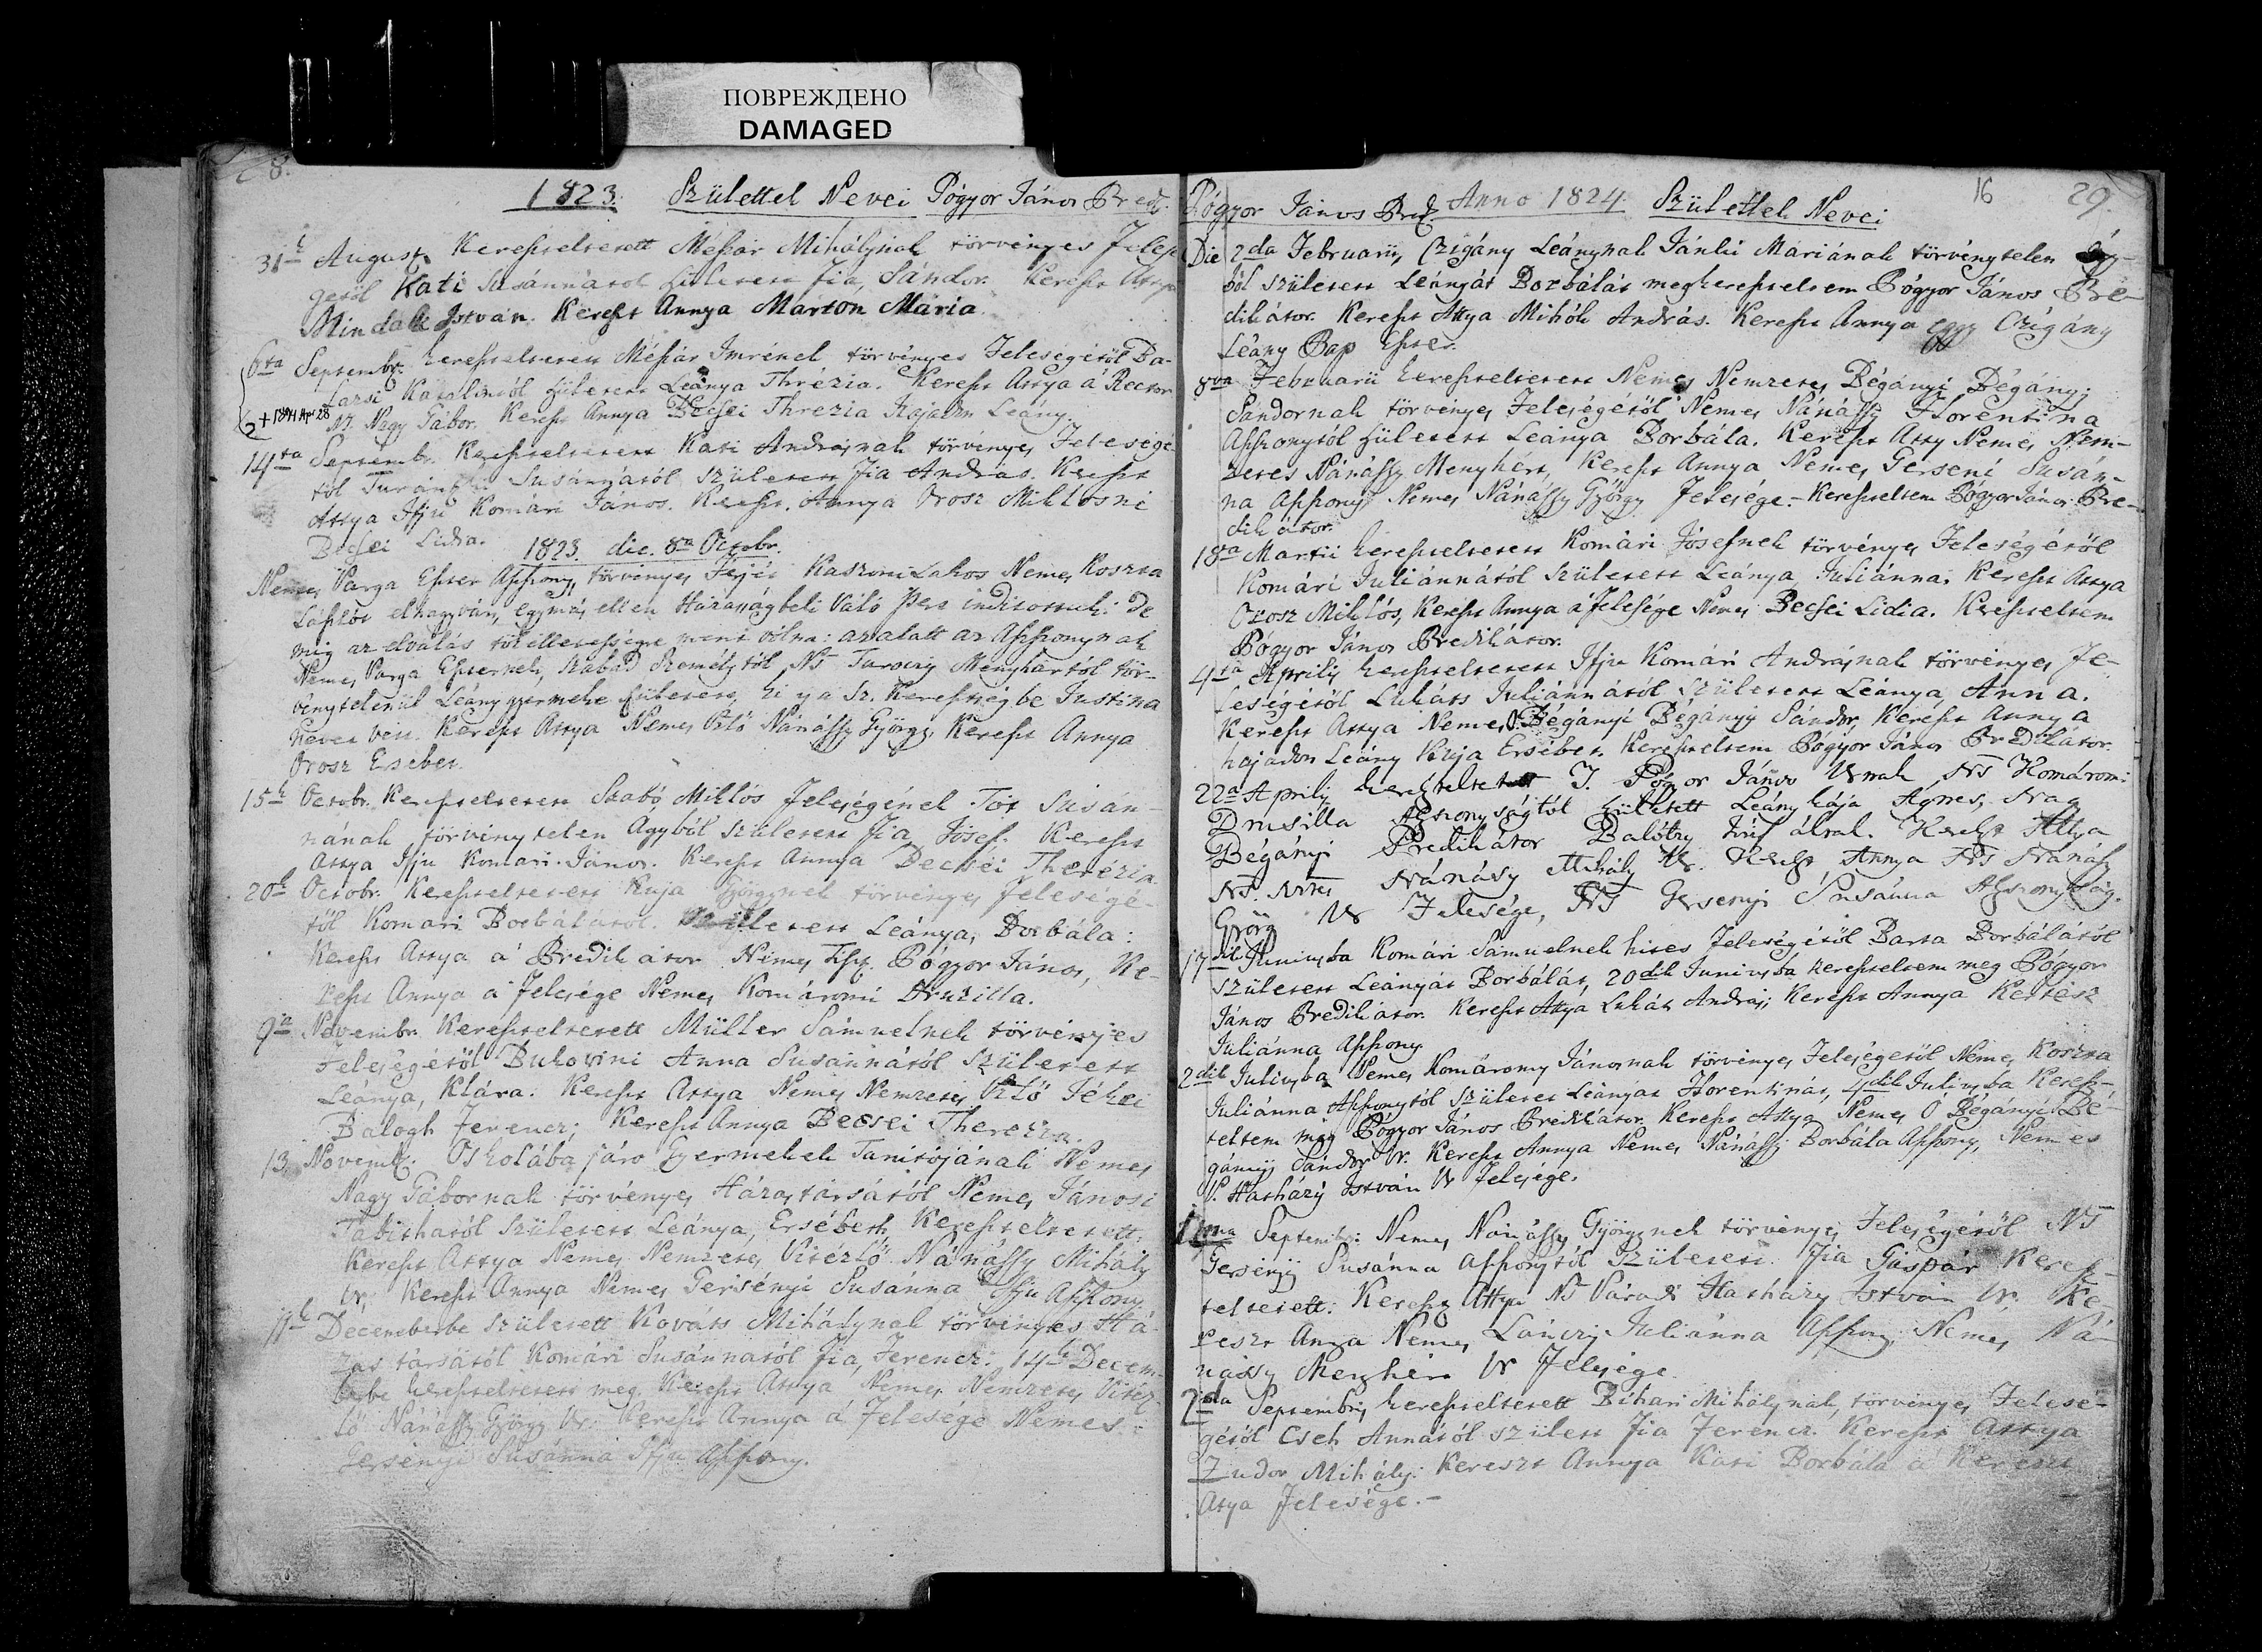 ПОВРЕЖДЕНО
DAMAGED
28.
1823. Születtek Nevei Pógyor János Pred.
31k August. Kereszteltetett Mészár Mihálynak törvényes Felesé
gétöl Kati Susánnátol születetett fia, Sándor. Kereszt Attya
Mindak István. Kereszt Annya Márton Mária.
6ta Septembr. kereszteltetett Mészár Imrének törvényes Feleségétöl Ba-
lasi Katalintól született Leánya Thrézia. Kereszt Attya á Rector
+ 1841 Apr 28
Ns. Nagy Gábor. Kereszt Annya Becsei Threzia Hajadon Leány.
14ta Septemb. Kereszteltetett Kati Andrásnak törvényes Feleségé
töl Susánnától született fia András. Kereszt
Attya Ifju Komári János. Kereszt. Annya Orosz Miklósné
Becsei Lidia. 1823. die. 8a Octobr.
Nemes Varga Eszter Asszony, törvényes Férjét Kaszoni Lakos Nemes Koszta
László elhagyván, egymás ellen Házasságbeli Váló pert indítottak: De
míg az elválás tökelletességre ment vólna: az alatt az Asszonynak
Nemes Varga Eszternek, szabad Személytöl, Ns Menyhártól tör-
vénytelenül Leány gyermeke született, ki is a Sz. Keresztségbe Justina
nevet vett. Kereszt Attya Nemes Vitzló Nánássy György, Kereszt Annya
Orosz Ersébet.
15k Octobr. Kereszteltetett Szabó Miklós Feleségének Tót Susán-
nának törvénytelen Agyból született fia Jósef. Kereszt
Attya Ifju Komári János. Kereszt Annya Becsei Therézia.
20k Octobr. Kereszteltetett Kuja Györgynek törvényes Feleségé-
töl Komári Borbálától született Leánya, Borbála:
Kereszt Attya á Predikátor Nemes Tisz. Pógyor János, Ke-
reszt Annya á Felesége Nemes Komáromi Druzilla.
9a Novembr. Kereszteltetett Müller Sámuelnek törvényes
Feleségétöl Bukovini Anna Susánnától született
Leánya, Klára. Kereszt Attya Nemes Nemzetes Vtzló Fekei
Balogh Ferencz; Kereszt Annya Becsei Therézia.
13 Novemb. Oskolába járo Gyermekek Tanitójának Nemes
Nagy Gábornak törvényes Házastársától Nemes Jánosi
Tabithatól született Leánya, Ersébeth, kereszteltetett:
Kereszt Attya Nemes Nemzetes Vitézlö Nánássy Mihály
Ur, Kereszt Annya Nemes Gersényi Susánna Ifju Asszony
11k Decemberbe született Kováts Mihálynak törvényes Há-
zas társától Komári Susánnától fia, Ferencz. 14k Decem-
berbe kereszteltetett meg. Kereszt Attya Nemes Nemzetes Vitéz
lö Nánássy György Ur. Kereszt Annya á Felesége Nemes
Gersényi Susánna Ifju Asszony.
Pógyor János Pred. Anno 1824. Születtek Nevei
16 29.
Die 2da Februarii, Czigány Leánynak Jánki Máriának törvénytelen Ágy-
ból született Leányát Borbálát megkereszteltem Pógyor János Pre-
dikátor. Kereszt Attya Mihók András. Kereszt Annya egy Czigány
Leány Pap Eszter.
8va Februarii kereszteltetett Nemes Nemzetes Bégányi Bégányi
Sándornak törvényes Feleségétöl Nemes Nánássy Florentina
Asszonytól született Leánya Borbála. Kereszt Atty Nemes Nem-
zetes Nánássy Menyhért, Kereszt Annya Nemes Gerseni Susán-
na Asszony Nemes Nánássy György Felesége.- Kereszteltem Pógyor János Pre-
dikátor.
18a Martii kereszteltetett Komári Jósefnek törvényes Feleségétöl
Komári Juliánnától született Leánya, Juliánna. Kereszt Attya
Orosz Miklós, Kereszt Annya á Felesége Nemes Becsei Lidia. Kereszteltem
Pógyor János Predikátor.
4ta Aprilis kereszteltetett Ifju Komári Andrásnak törvényes Fe-
leségétöl Lukáts Juliánnától született Leánya, Anna.
Kereszt Attya Nemes Bégányi Bégányi Sándor, Kereszt Annya
hajadon Leány Kuja Ersébet. Kereszteltem Pógyor János Predikátor.
22a Aprilis kereszteltetett T. Pógyor János Urnak Ns Komáromi
Drusilla Aszonyságtól született Leánykája Agnes, Nagy
Bégányi Predikátor Balótzy Jósef által. Kereszt Attya
Ns. Ntes Nánásy Mihály Ur. Kereszt Annya Ns Nánásy
Györg Ur Felesége, Ns Gersenyi Susánna Aszonyság.
17dik Juniusba Komári Sámuelnek hites Feleségétöl Barta Borbálától
született Leányát Borbálát, 20dik Juniusba kereszteltem meg Pógyor
János Predikátor. Kereszt Attya Lukáts András; Kereszt Annya Kertész
Juliánna Asszony
2dik Juliusba Nemes Komáromy Jánosnak törvényes Feleségétöl Nemes Koszta
Juliánna Asszonytól született Leányát Florentinát, 4dik Juliusba keresz-
teltem még Pógyor János Predikátor, Kereszt Attya Nemes Ó Bégányi Bé-
gányi Sándor Ur. Kereszt Annya Nemes Nánássy Borbála Asszony, Nemes
V. Hatházy István Ur Felesége.
1ma Septemb: Nemes Nánássy Györgynek törvényes Feleségétöl Ns
Gersényi Susánna Asszonytól született fia Gáspár keresz-
teltetett. Kereszt Attya Ns Váradi Hatházy István Ur. Ke-
reszt Anya Nemes Lánczy Juliánna Asszony Nemes Ná-
nássy Menyhért Ur Felesége.
2da Septembris kereszteltetett Bihari Mihálynak, törvényes Felesé-
gétöl Cseh Annától született fia Ferencz. Kereszt Attya
Zudor Mihály: Kereszt Annya Kati Borbála á Kereszt
Atya Felesége.-